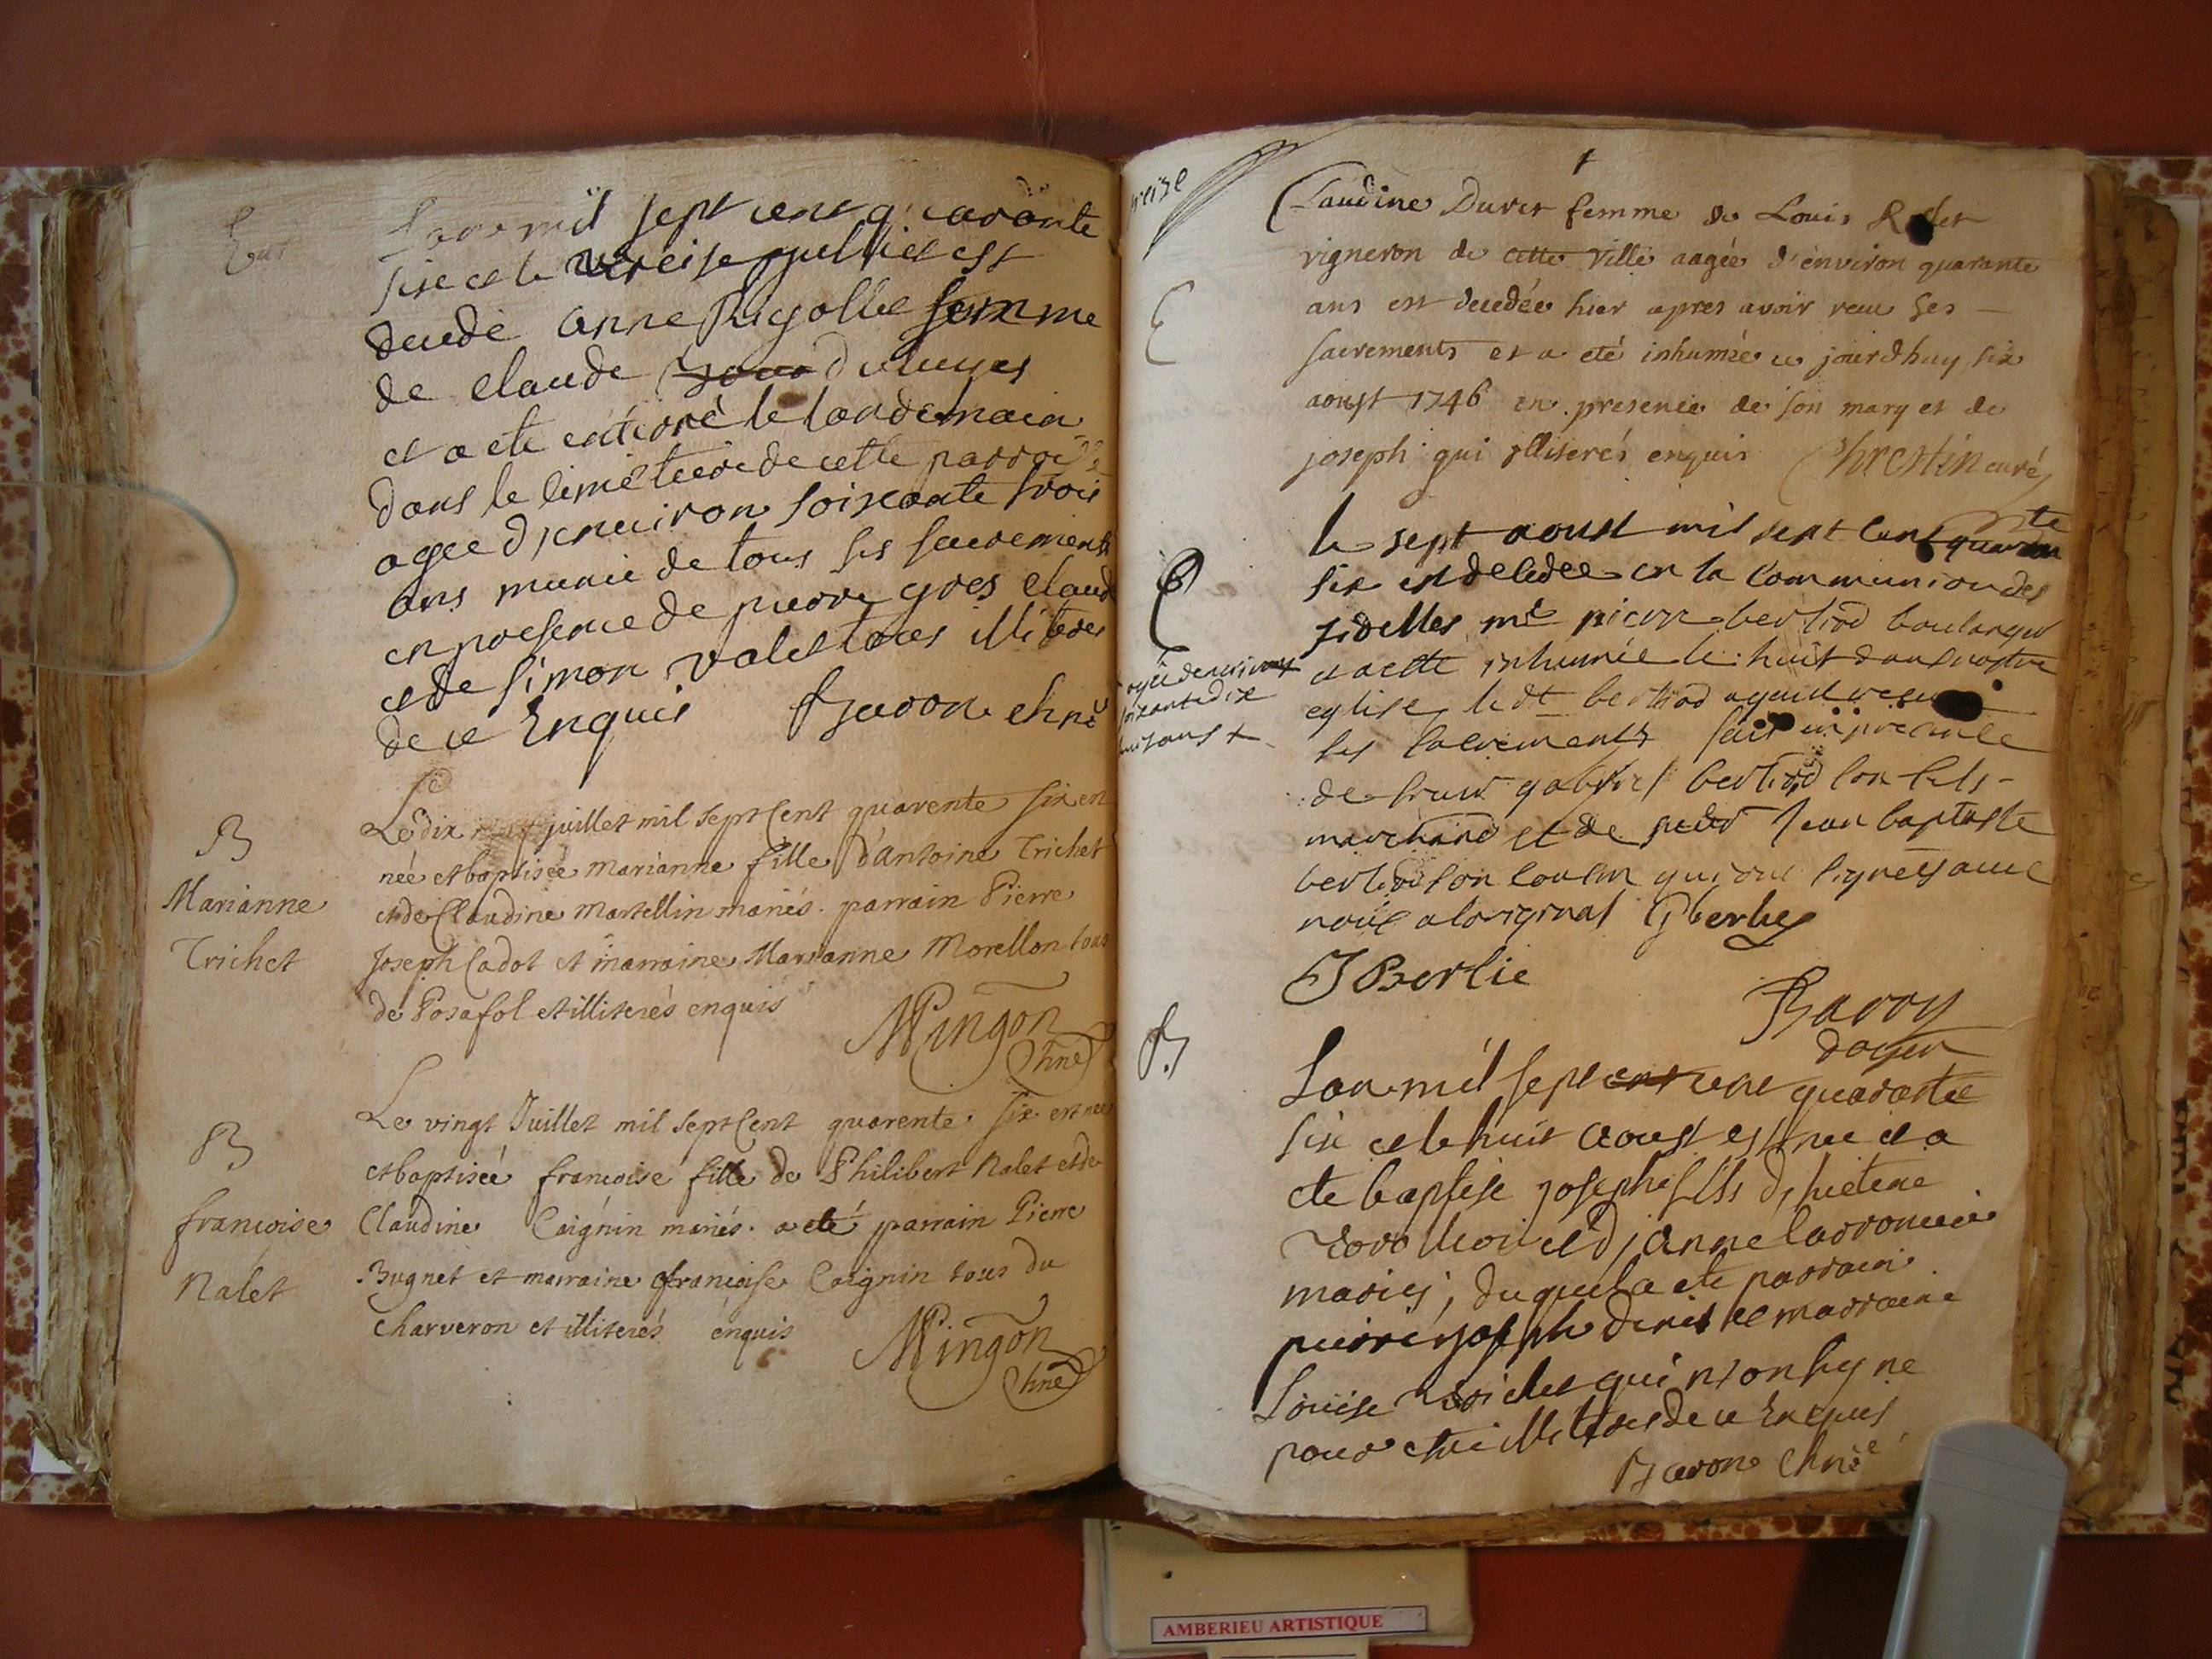 Ent
L'an mil sept cent quarante
sixe et le treise juillies est
deudé anne Rigollie femme
de claude
et a ete entérré le landemain
dans le simétiere de cette parroi
agee d'enuiron soixante trois
ans munie de tous ses sacrements
en presence de pierre gros claude
et de simon valet tous illiteres
de ce Enquis Baron chne
B
Marianne
Trichet
Le dix juillet mil sept Cent quarente six en
née et baptiseé marianne fille d'Antoine Trichet
et de Claudine Martellin mariés. parrain Pierre
Joseph Cadot et marraine Marianne Morellon tous
de Posafol et illiterés enquis
Mingon
Chne
B
francoise
Nalet
Le vingt Juillet mil sept Cent quarente six est nee
et baptiseé francoise fille de Philibert Nalet et de
Claudine Caignin mariés. a eté parrain Pierre
Bugnet et marraine francoise Caignin tous du
Charveron et illiterés enquis
Mingon
Chne
treize
Claudine Duret femme de Louis
vigneron de cette ville aagée d'environ quarante
ans est decedée hier apres avoir receu ses
sacrements et a eté inhumée ce jourdhuy six
aoust 1746 en presence de son mary et de
joseph qui illiterés enquis Chrestin curé
E
le sept aoust mil sept cent quarante
six est decedée en la communion des
fidelles mre pierre berliod boulanger
et a esté inhumée le huit dans nostre
eglise, le dt berliod ayant receu
ses sacrements fait en presence
de sieur gabriel berliod son fils
marchand et de sieur Jean baptiste
berliod son cousin qui ont signés avec
nous a loriginal G berlie
J Berlie
Barry
doyen
E
agée denviron
soixante dix
huit ans +
B
L'an mil sept cent cent quarante
sixe et le huit aoust est nee et a
ete baptise joseph fils d'hietene
et d'anne
mariés, duquel a ete parrain
pierre joseph et marraine
Louise qui n'ont signe
pour etre illiteres de ce Enquis
Baron Chne
AMBERIEU ARTISTIQUE